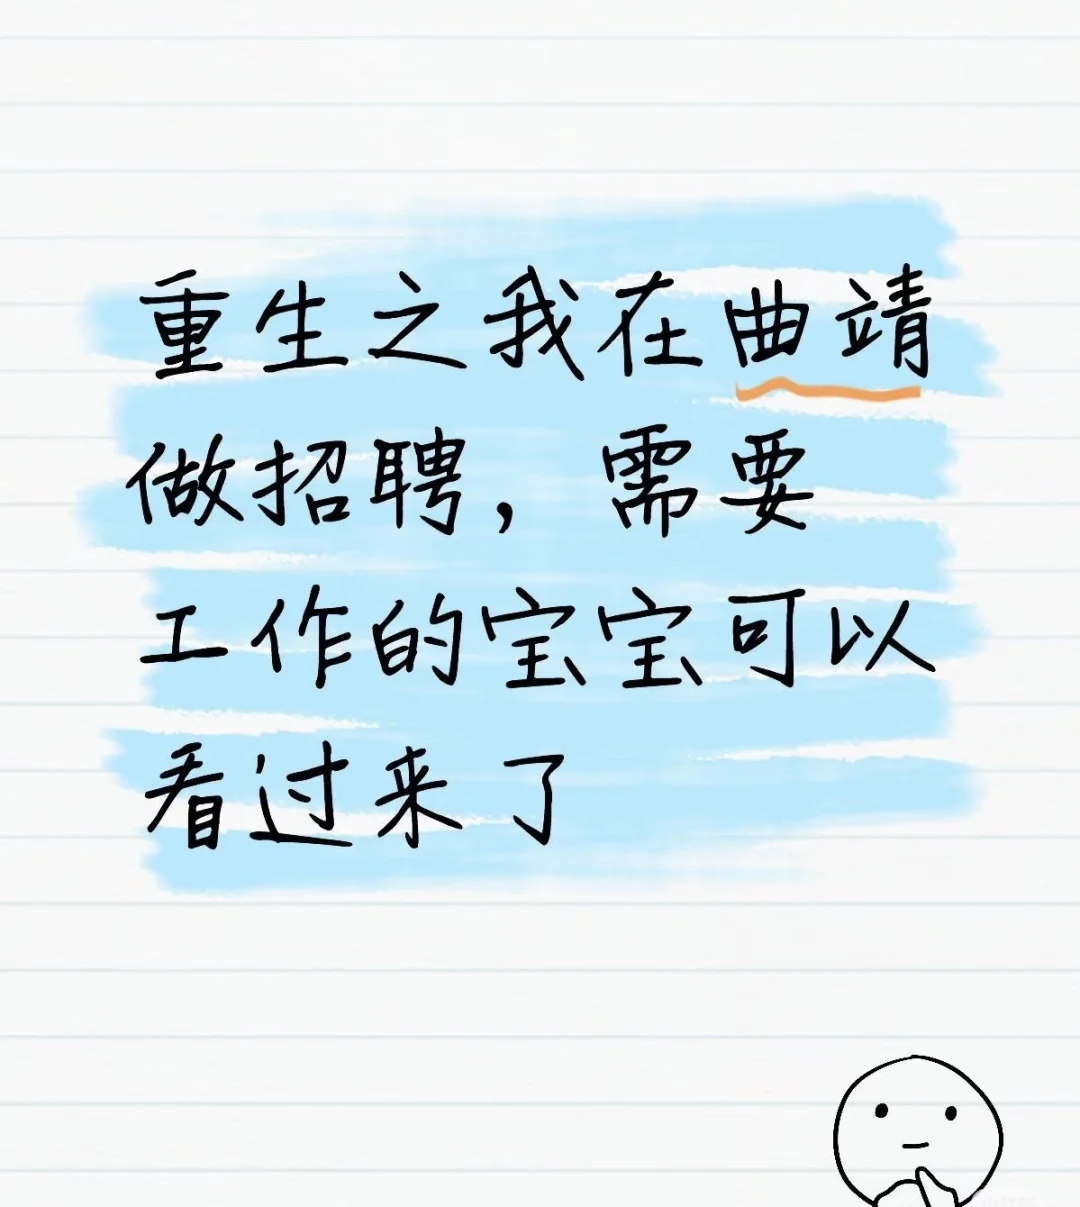 重生之我在曲靖
做招聘，需要
工作的宝宝可以
看过来了